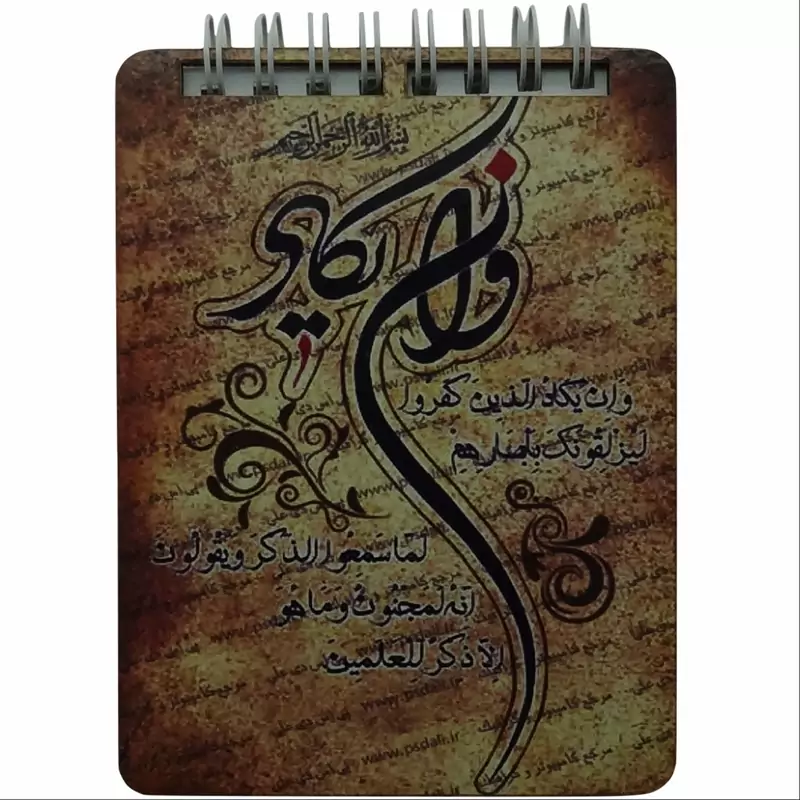 بسم الله الرحمن الرحيم
وان يكاد
وَاِن يَكادُ الَّذينَ كَفَرُوا
لَيُزلِقُونَكَ بِأَبصارِهِم
لَمّا سَمِعُوا الذِّكرَ وَيَقُولُونَ
اِنَّهُ لَمَجنُونٌ وَما هُوَ
اِلّا ذِكرٌ لِلعالَمينَ
www.psdali.ir
مرجع کامپیوتر و گرافیک
پی اس دی علی